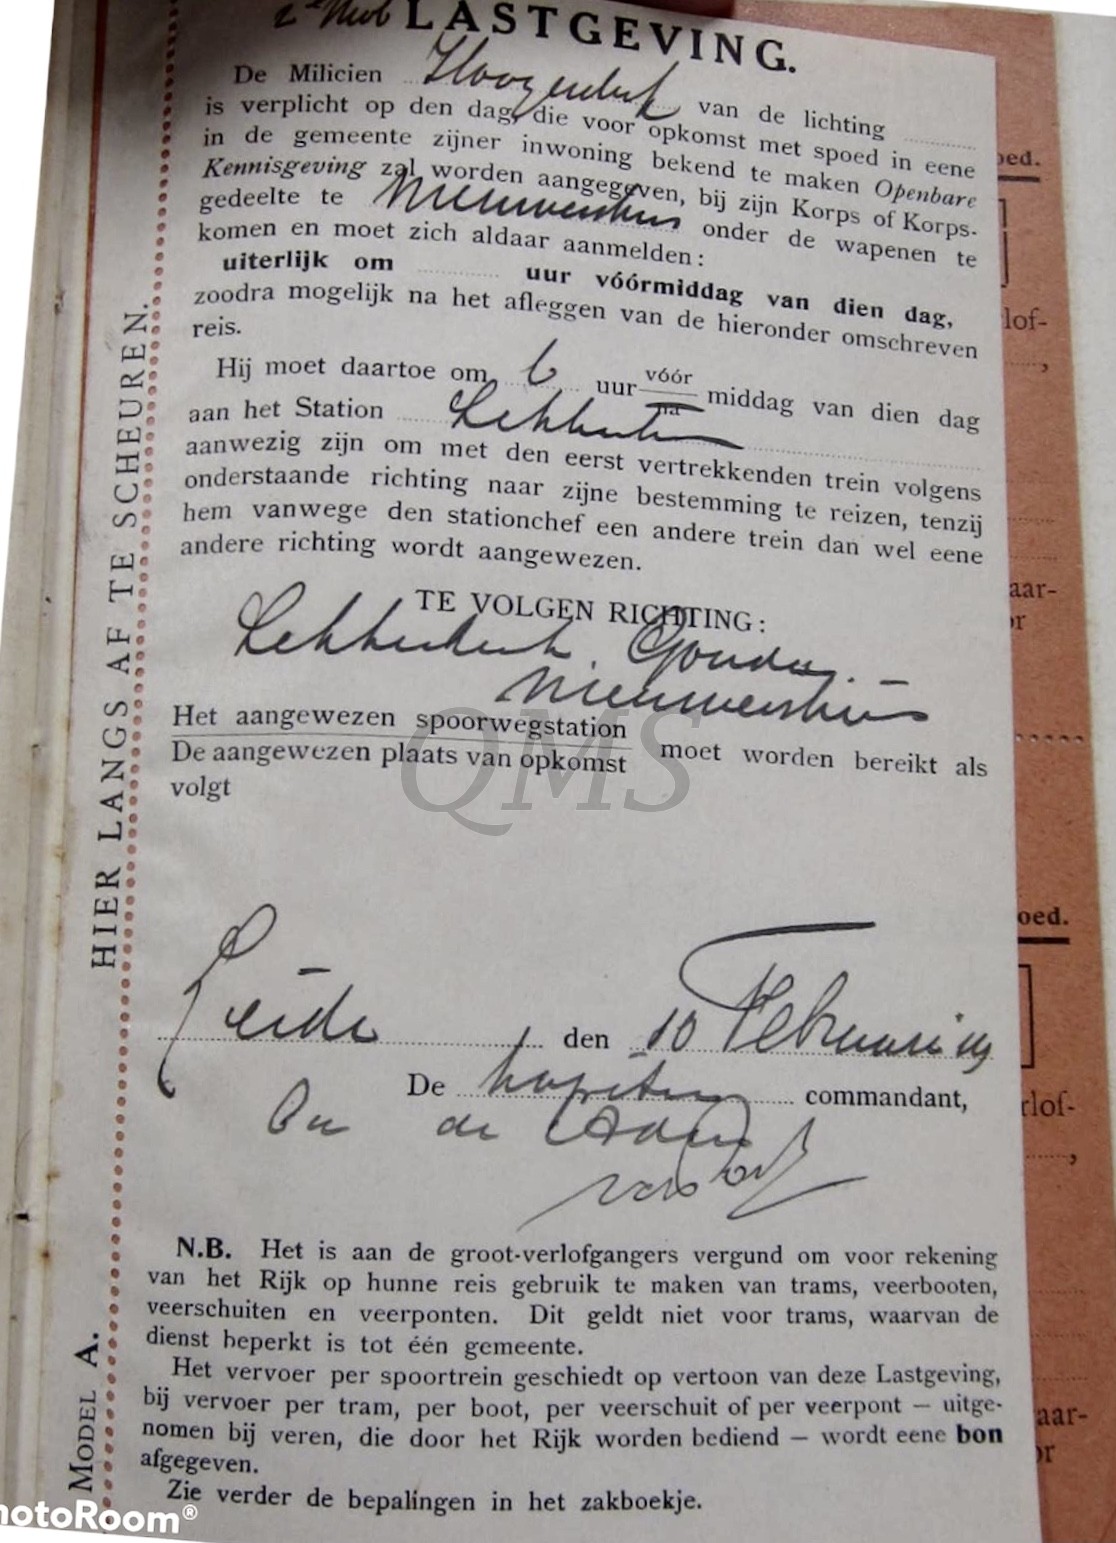 LASTGEVING.
De Milicien Hoogendijk van de lichting
is verplicht op den dag, die voor opkomst met spoed in eene
in de gemeente zijner inwoning bekend te maken Openbare
Kennisgeving zal worden aangegeven, bij zijn Korps of Korps-
gedeelte te Nieuwersluis onder de wapenen te
komen en moet zich aldaar aanmelden:
uiterlijk om uur vóórmiddag van dien dag,
zoodra mogelijk na het afleggen van de hieronder omschreven
reis.
Hij moet daartoe om 6 uur vóór
na middag van dien dag
aan het Station Lekkerkerk
aanwezig zijn om met den eerst vertrekkenden trein volgens
onderstaande richting naar zijne bestemming te reizen, tenzij
hem vanwege den stationchef een andere trein dan wel eene
andere richting wordt aangewezen.
TE VOLGEN RICHTING:
Lekkerkerk. Gouda. –
Nieuwersluis
Het aangewezen spoorwegstation
De aangewezen plaats van opkomst moet worden bereikt als
volgt
QMS
Leiden den 10 Februari 19
De Kapitein commandant,
de
N.B. Het is aan de groot-verlofgangers vergund om voor rekening
van het Rijk op hunne reis gebruik te maken van trams, veerbooten,
veerschuiten en veerponten. Dit geldt niet voor trams, waarvan de
dienst beperkt is tot één gemeente.
Het vervoer per spoortrein geschiedt op vertoon van deze Lastgeving,
bij vervoer per tram, per boot, per veerschuit of per veerpont — uitge-
nomen bij veren, die door het Rijk worden bediend — wordt eene bon
afgegeven.
Zie verder de bepalingen in het zakboekje.
HIER LANGS AF TE SCHEUREN.
MODEL A.
oed.
lof-
,
aar-
or
oed.
rlof-
,
aar-
or
hotoRoom®